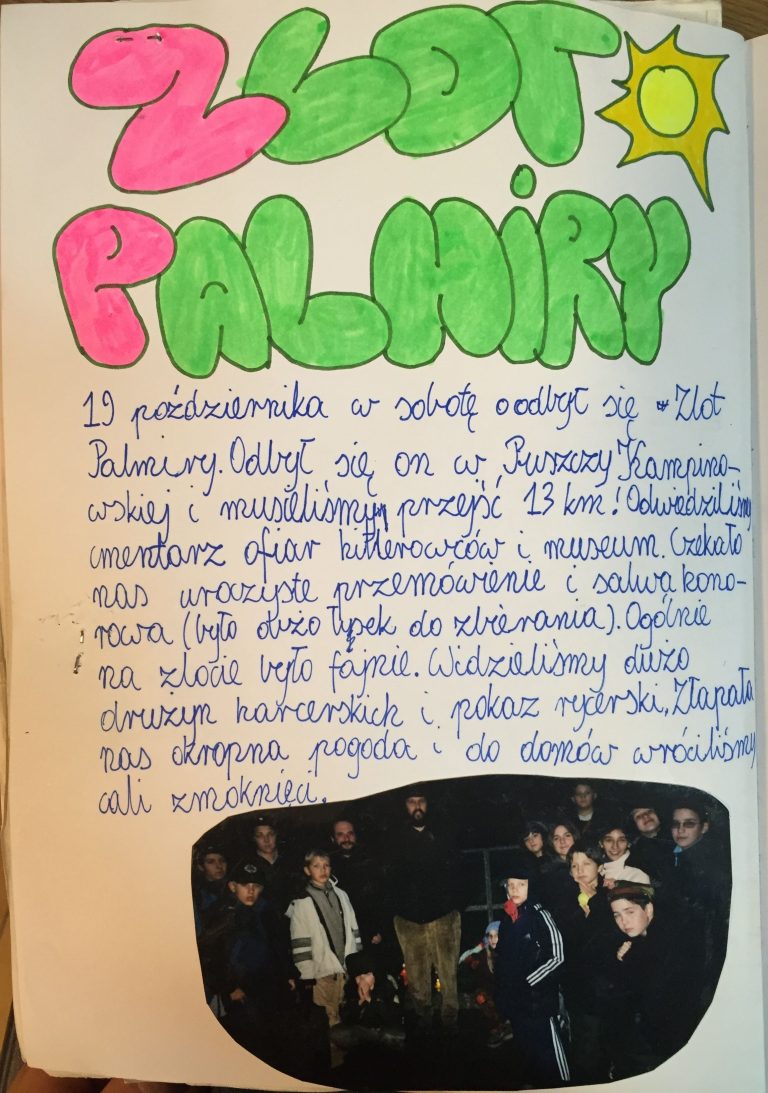 ZLOT
PALMIRY
19 października w sobotę odbył się Zlot
Palmiry. Odbył się on w Puszczy Kampino-
wskiej i musieliśmy przejść 13 km! Odwiedziliśmy
cmentarz ofiar hitlerowców i museum. Czekało
nas uroczyste przemówienie i salwa kono-
rowa (było dużo łusek do zbierania). Ogólnie
na zlocie było fajnie. Widzieliśmy dużo
drużyn harcerskich i pokaz rycerski. Złapała
nas okropna pogoda i do domów wróciliśmy
cali zmoknięci.